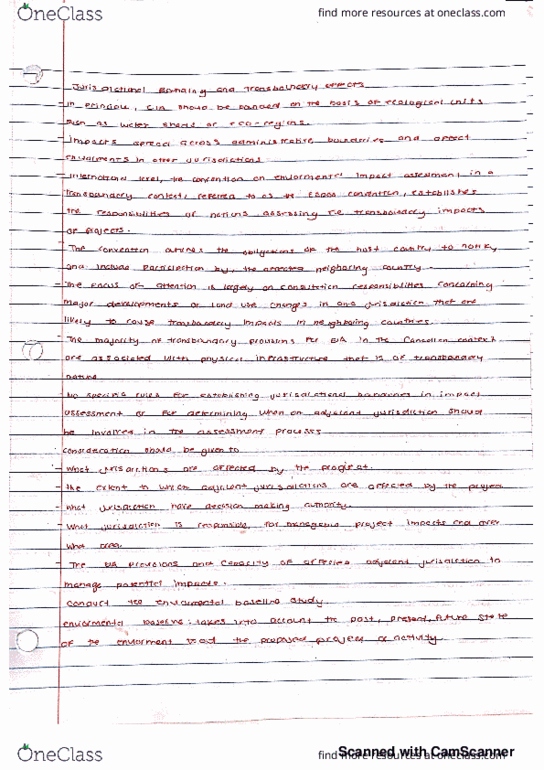 OneClass
find more resources at oneclass.com
Jurisdictional Boundaries and transboundary effects
In principle, EIA should be bounded on the basis of ecological units
such as water sheds or eco-regions.
- Impacts spread across administrative boundaries and affect
enviroments in other jurisdictions
- international level, the convention on enviorments' impact assessment in a
transboundary context, referred to as the Espoo convention, establishes
the responsibilities of nations assessing the transboundary impacts
of projects.
- The convention outlines the obligations of the host country to notify
and include participation by, the affected neighboring country.
- the focus of attention is largely on consultation responsibilities concerning
major developments or land use changes in one jurisdiction that are
likely to cause transboundary impacts in neighboring countries.
- The majority of transboundary provisions for EIA in the Canadian context
are associated with physical infrastructure that is of transboundary
nature
No specific rules for establishing jurisdictional boundaries in impact
assessment or for determining when an adjacent jurisdiction should
be involved in the assessment process
consideration should be given to
- What jurisdictions are affected by the project.
- the extent to which adjacent jurisdictions are affected by the project
- what jurisdiction have decision making authority.
- What jurisdiction is responsible for managing project impacts and over
what area.
- The EIA provisions and capacity of affected adjacent jurisdiction to
manage potential impacts.
conduct the enviromental baseline study
enviormental baseline: takes into account the past, present, future state
of the enviorment the proposed project or activity.
OneClass
find more resources at oneclass.com
Scanned with CamScanner